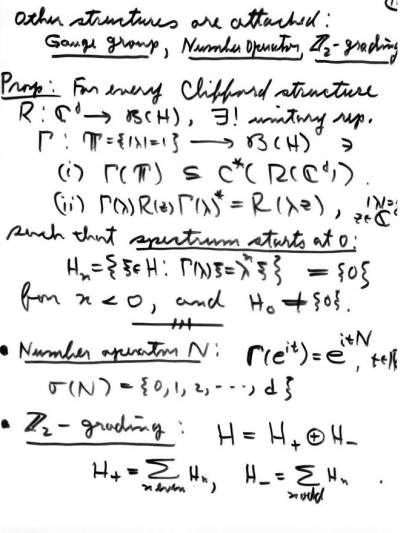 Other structures are attached:
Gauge group, Number Operator, ℤ₂-grading
Prop: For every Clifford structure
R: ℂᵈ → B(H), ∃! unitary rep.
Γ: 𝕋={|λ|=1} → B(H) ∋
(i) Γ(𝕋) ⊆ C*(R(ℂᵈ)).
(ii) Γ(λ)R(z)Γ(λ)* = R(λz), |λ|=1 z∈ℂᵈ
such that spectrum starts at 0:
Hₙ={ξ∈H: Γ(λ)ξ=λⁿξ} = {0}
for n < 0, and H₀ ≠ {0}.
• Number operator N: Γ(eⁱᵗ)=eⁱᵗᴺ, t∈ℝ
σ(N) = {0, 1, 2, ---, d}
• ℤ₂-grading: H = H₊ ⊕ H₋
H₊ = Σ Hₙ, H₋ = Σ Hₙ .
n even n odd